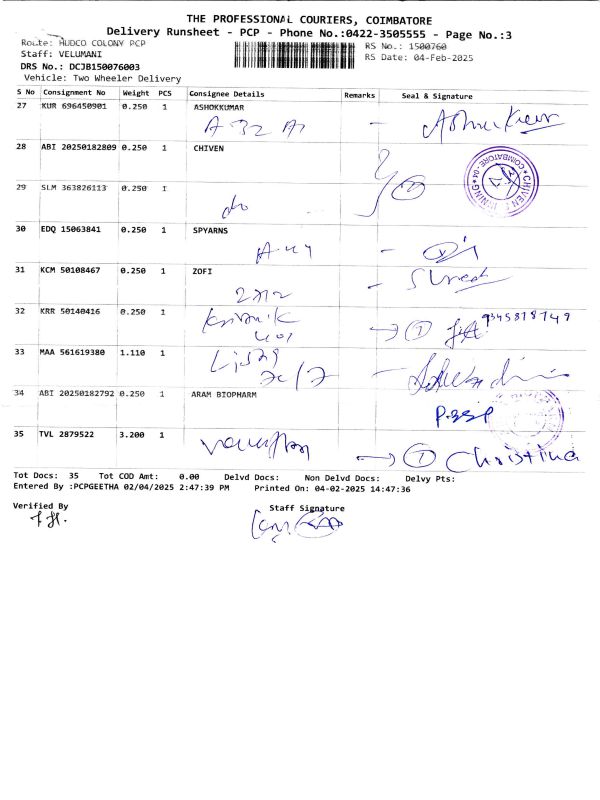 THE PROFESSIONAL COURIERS, COIMBATORE
Delivery Runsheet - PCP - Phone No.:0422-3505555 - Page No.:3
Route: HUDCO COLONY PCP RS No.: 1500760
Staff: VELUMANI RS Date: 04-Feb-2025
DRS No.: DCJB150076003
Vehicle: Two Wheeler Delivery
S No Consignment No Weight PCS Consignee Details Remarks Seal & Signature
27 KUR 696450901 0.250 1 ASHOKKUMAR
A-32 Ashokkumar
28 ABI 20250182809 0.250 1 CHIVEN
COIMBATORE-04
29 SLM 363826113 0.250 1
do
30 EDQ 15063841 0.250 1 SPYARNS
31 KCM 50108467 0.250 1 ZOFI
32 KRR 50140416 0.250 1
9345818749
33 MAA 561619380 1.110 1
34 ABI 20250182792 0.250 1 ARAM BIOPHARM
35 TVL 2879522 3.200 1
Christina
Tot Docs: 35 Tot COD Amt: 0.00 Delvd Docs: Non Delvd Docs: Delvy Pts:
Entered By :PCPGEETHA 02/04/2025 2:47:39 PM Printed On: 04-02-2025 14:47:36
Verified By Staff Signature